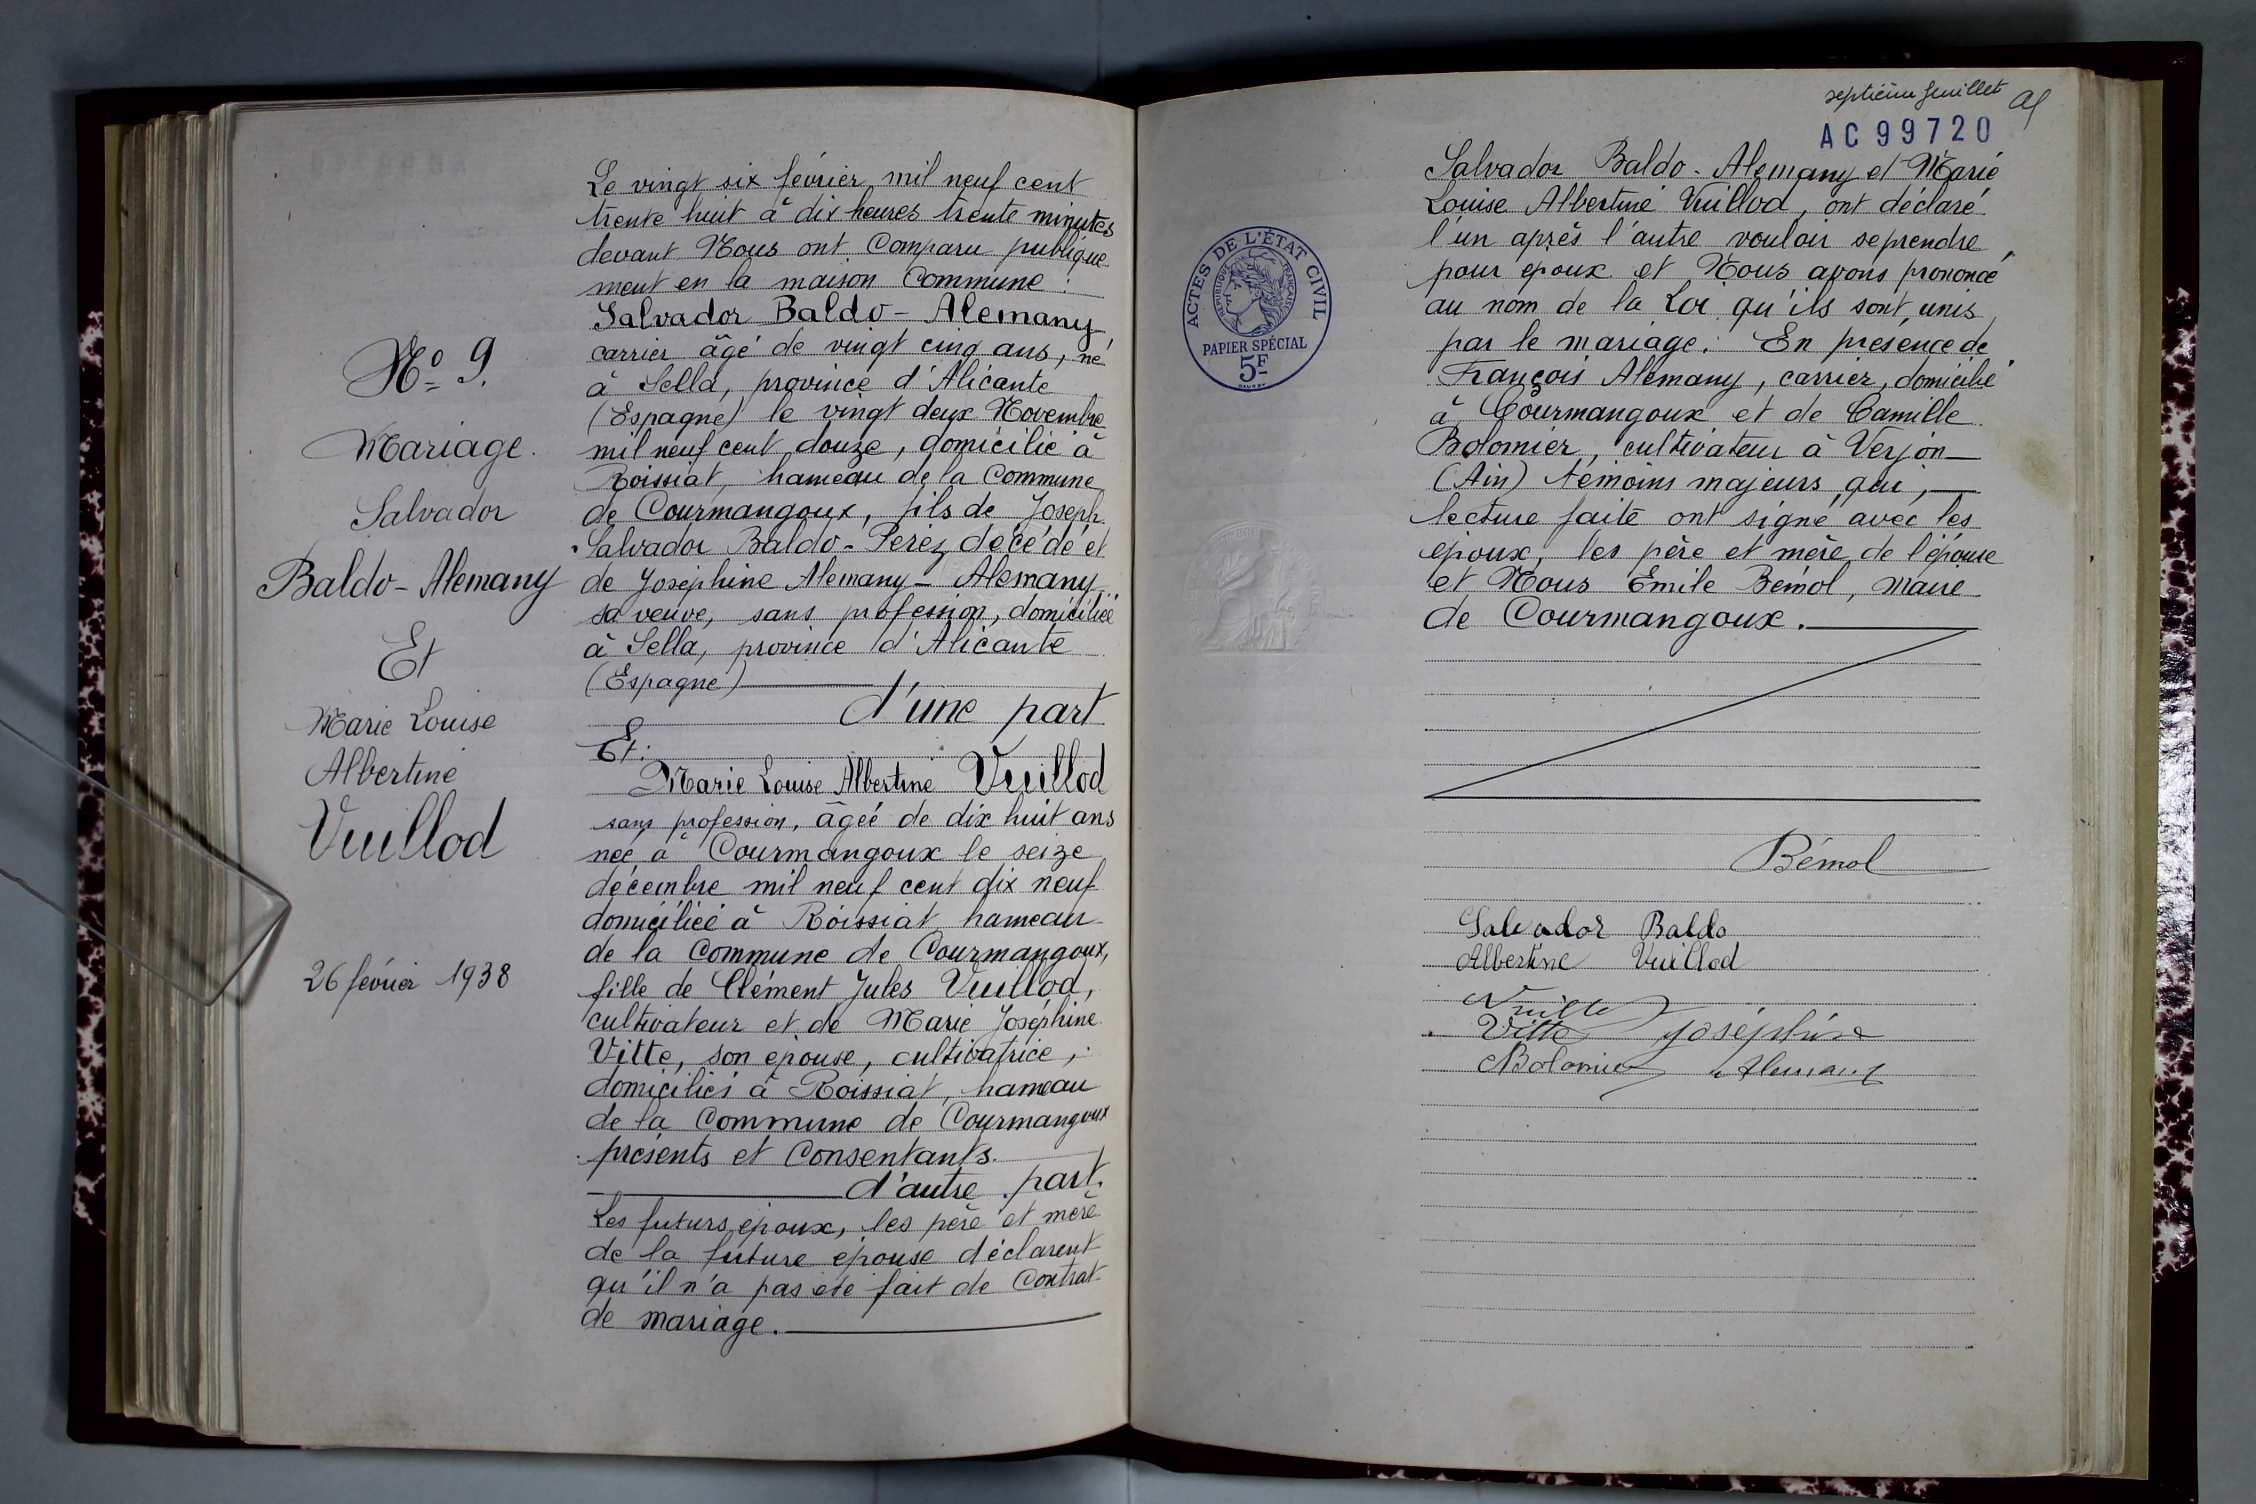 N° 9.
Mariage.
Salvador
Baldo - Alemany
Et
Marie Louise
Albertine
Vuillod
26 février 1938
Le vingt six février mil neuf cent
trente huit à dix heures trente minutes
devant Nous ont Comparu publique
ment en la maison Commune :
Salvador Baldo - Alemany
carrier âgé de vingt cinq ans, né
à Sella, province d'Alicante
(Espagne) le vingt deux Novembre
mil neuf cent douze, domicilié à
Roissiat, hameau de la Commune
de Courmangoux, fils de Joseph
Salvador Baldo - Pérez décédé et
de Joséphine Alemany - Alemany
sa veuve, sans profession, domiciliée
à Sella, province d'Alicante
(Espagne)
d'une part
Et :
Marie Louise Albertine Vuillod
sans profession, âgée de dix huit ans
née à Courmangoux le seize
décembre mil neuf cent dix neuf
domiciliée à Roissiat hameau
de la Commune de Courmangoux,
fille de Clément Jules Vuillod,
cultivateur et de Marie Joséphine
Vitte, son épouse, cultivatrice,
domiciliés à Roissiat, hameau
de la Commune de Courmangoux
présents et Consentants.
d'autre part.
Les futurs époux, les père et mère
de la future épouse déclarent
qu'il n'a pas été fait de Contrat
de mariage.
septième feuillet
AC 99720
ACTES DE L'ÉTAT CIVIL
RÉPUBLIQUE FRANÇAISE
PAPIER SPÉCIAL
5F
Salvador Baldo - Alemany et Marie
Louise Albertine Vuillod, ont déclaré
l'un après l'autre vouloir se prendre
pour époux et Nous avons prononcé
au nom de la Loi qu'ils sont unis
par le mariage. En présence de
François Alemany, carrier, domicilié
à Courmangoux et de Camille
Bolomier, cultivateur à Verjon
(Ain) témoins majeurs, qui,
lecture faite ont signé avec les
époux, les père et mère de l'épouse
et Nous Emile Bémol, Maire
de Courmangoux.
Bémol
Salvador Baldo
Albertine Vuillod
Vitte Joséphine
Bolomier Alemany